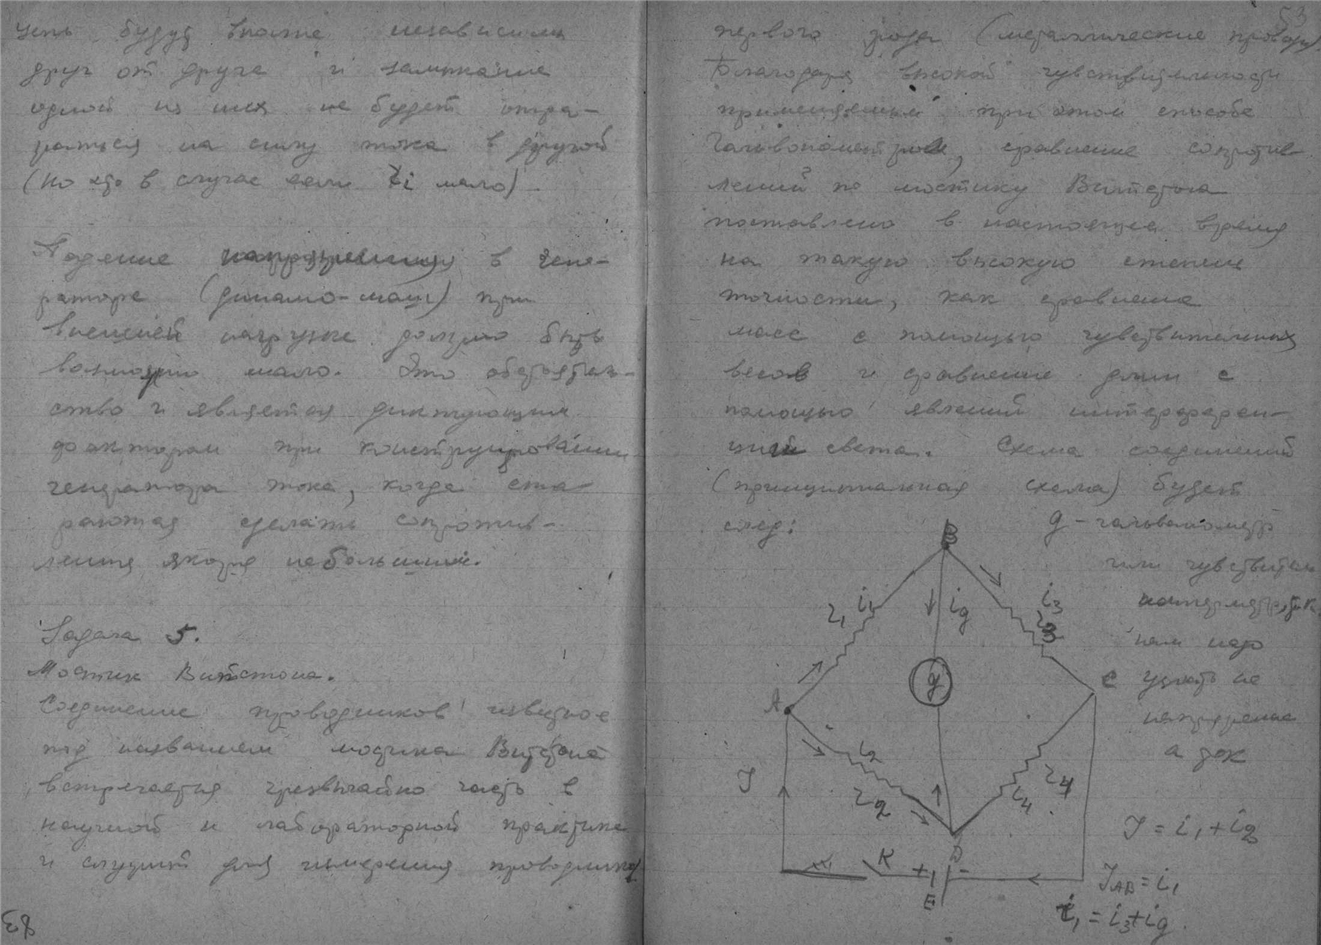 цепь будут вполне независимы
друг от друга и замыкание
одной из них не будет отра-
жаться на силу тока в другой
(но это в случае если ri мало)
Падение напряжения в гене-
раторе (динамо-маш) при
внешней нагрузке должно быть
возможно мало. Это обстоятель-
ство и является диктующим
фактором при конструировании
генератора тока, когда ста-
раются сделать сопротив-
ления якоря небольшим.
Задача 5.
Мостик Витстона.
Соединение проводников известное
под названием мостика Витстона
встречается чрезвычайно часто в
научной и лабораторной практике
и служит для измерения проводников
53
первого рода (металлические провода)
Благодаря высокой чувствительности
применяемым при этом способе
Гальванометров, сравнение сопротив-
лений по мостику Витстона
поставлено в настоящее время
на такую высокую степень
точности, как сравнение
масс с помощью чувствительных
весов и сравнение длин с
помощью явлений интерферен-
ций света. Схема соединений
(принципиальная схема) будет
след:
g - гальванометр
или чувствительн
амперметр, т.к.
нам надо
узнать не
напряжение
а ток
B
r1 i1
ig
i3
r3
A
g
C
i2
r2
r4
i4
J
D
K
+ -
E
J = i1 + i2
JAB = i1
i1 = i3 + ig